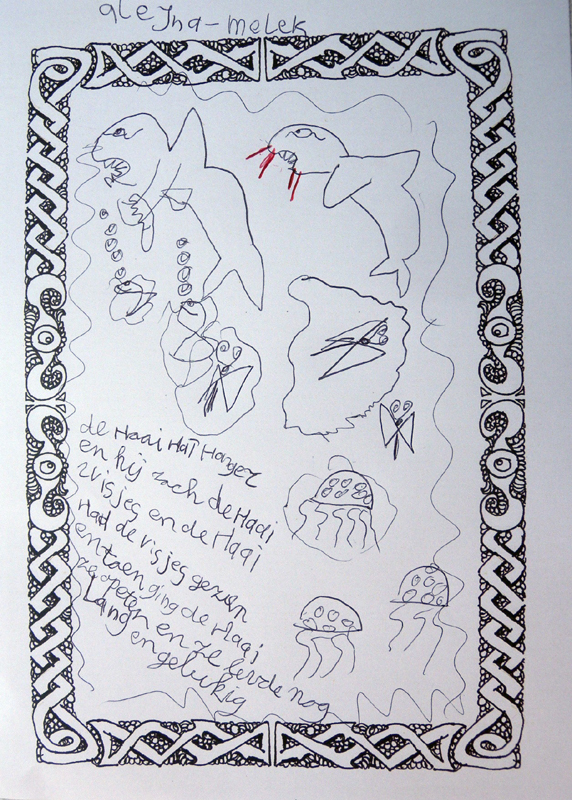 alejna-melek
de Haai Hat Honger
en hij zach de Haai
2 visjes en de Haai
Had de visjes gezien
en toen ging de Haai
ze opeten en ze leevde nog
Lang
en gelukig